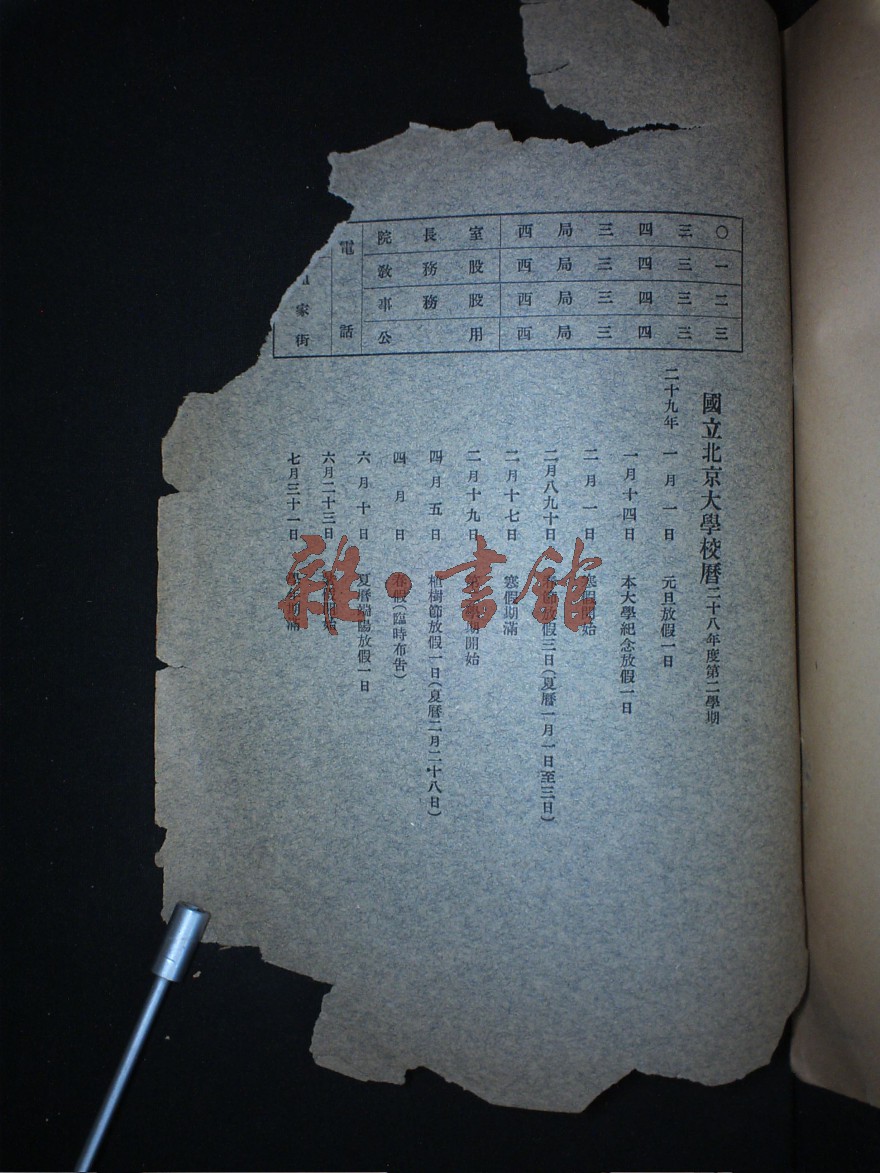 院長室 西局三四三〇
教務股 西局三四三一
事務股 西局三四三二
公用 西局三四三三
電話
家街
國立北京大學校曆 二十八年度第二學期
二十九年 一月一日 元旦放假一日
一月十四日 本大學紀念放假一日
二月一日 寒假開始
二月八九十日 節放假三日(夏曆一月一日至三日)
二月十七日 寒假期滿
二月十九日 第二學期開始
四月五日 植樹節放假一日(夏曆二月二十八日)
四月 日 春假(臨時布告)
六月十日 夏曆端陽放假一日
六月二十三日 假開始
七月三十一日 學年期滿
雜·書館